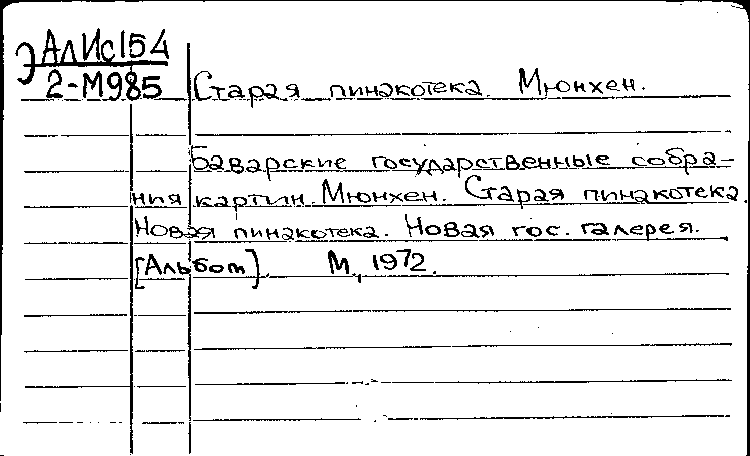 Э АлИс154
2-М985
Старая пинакотека. Мюнхен.
Баварские государственные собра-
ния картин. Мюнхен. Старая пинакотека.
Новая пинакотека. Новая гос. галерея.
[Альбом]. М, 1972.